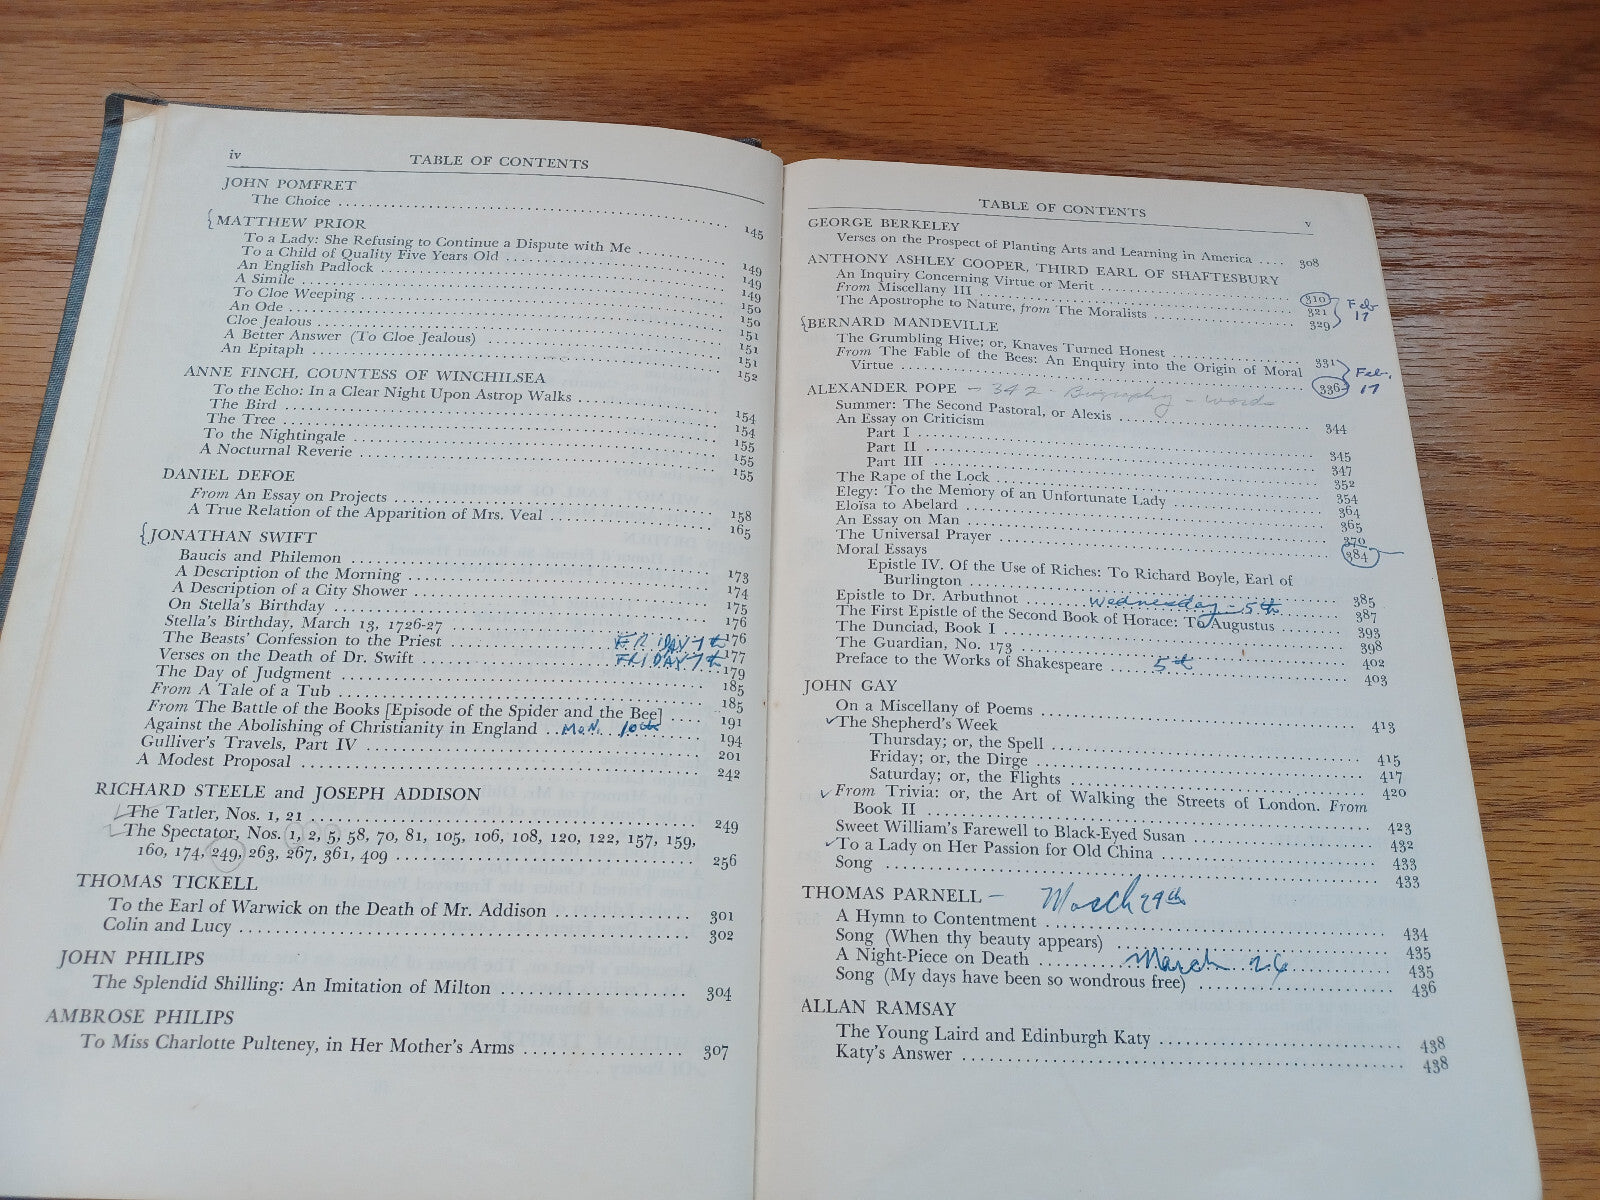 iv
TABLE OF CONTENTS
JOHN POMFRET
The Choice ........ 145
MATTHEW PRIOR
To a Lady: She Refusing to Continue a Dispute with Me ........ 149
To a Child of Quality Five Years Old ........ 149
An English Padlock ........ 149
A Simile ........ 150
To Cloe Weeping ........ 150
An Ode ........ 151
Cloe Jealous ........ 151
A Better Answer (To Cloe Jealous) ........ 151
An Epitaph ........ 152
ANNE FINCH, COUNTESS OF WINCHILSEA
To the Echo: In a Clear Night Upon Astrop Walks ........ 154
The Bird ........ 154
The Tree ........ 155
To the Nightingale ........ 155
A Nocturnal Reverie ........ 155
DANIEL DEFOE
From An Essay on Projects ........ 158
A True Relation of the Apparition of Mrs. Veal ........ 165
JONATHAN SWIFT
Baucis and Philemon ........ 173
A Description of the Morning ........ 174
A Description of a City Shower ........ 175
On Stella's Birthday ........ 176
Stella's Birthday, March 13, 1726-27 ........ 176
The Beasts' Confession to the Priest ........ FRIDAY 7th 177
Verses on the Death of Dr. Swift ........ FRIDAY 7th 179
The Day of Judgment ........ 185
From A Tale of a Tub ........ 185
From The Battle of the Books [Episode of the Spider and the Bee] .... 191
Against the Abolishing of Christianity in England .. Mon. 10th 194
Gulliver's Travels, Part IV ........ 201
A Modest Proposal ........ 242
RICHARD STEELE and JOSEPH ADDISON
The Tatler, Nos. 1, 21 ........ 249
The Spectator, Nos. 1, 2, 5, 58, 70, 81, 105, 106, 108, 120, 122, 157, 159,
160, 174, 249, 263, 267, 361, 409 ........ 256
THOMAS TICKELL
To the Earl of Warwick on the Death of Mr. Addison ........ 301
Colin and Lucy ........ 302
JOHN PHILIPS
The Splendid Shilling: An Imitation of Milton ........ 304
AMBROSE PHILIPS
To Miss Charlotte Pulteney, in Her Mother's Arms ........ 307
TABLE OF CONTENTS
v
GEORGE BERKELEY
Verses on the Prospect of Planting Arts and Learning in America .... 308
ANTHONY ASHLEY COOPER, THIRD EARL OF SHAFTESBURY
An Inquiry Concerning Virtue or Merit ........ 310
From Miscellany III ........ 321 Feb 17
The Apostrophe to Nature, from The Moralists ........ 329
BERNARD MANDEVILLE
The Grumbling Hive; or, Knaves Turned Honest ........ 331
From The Fable of the Bees: An Enquiry into the Origin of Moral
Virtue ........ 336 Feb. 17
ALEXANDER POPE – 342 - Biography – words
Summer: The Second Pastoral, or Alexis ........ 344
An Essay on Criticism
Part I ........ 345
Part II ........ 347
Part III ........ 352
The Rape of the Lock ........ 354
Elegy: To the Memory of an Unfortunate Lady ........ 364
Eloïsa to Abelard ........ 365
An Essay on Man ........ 370
The Universal Prayer ........ 384
Moral Essays
Epistle IV. Of the Use of Riches: To Richard Boyle, Earl of
Burlington ........ 385
Epistle to Dr. Arbuthnot ........ Wednesday – 5th 387
The First Epistle of the Second Book of Horace: To Augustus ........ 393
The Dunciad, Book I ........ 398
The Guardian, No. 173 ........ 402
Preface to the Works of Shakespeare ........ 5th 403
JOHN GAY
On a Miscellany of Poems ........ 413
The Shepherd's Week
Thursday; or, the Spell ........ 415
Friday; or, the Dirge ........ 417
Saturday; or, the Flights ........ 420
From Trivia: or, the Art of Walking the Streets of London. From
Book II ........ 423
Sweet William's Farewell to Black-Eyed Susan ........ 432
To a Lady on Her Passion for Old China ........ 433
Song ........ 433
THOMAS PARNELL – March 29th
A Hymn to Contentment ........ 434
Song (When thy beauty appears) ........ 435
A Night-Piece on Death ........ March 26 435
Song (My days have been so wondrous free) ........ 436
ALLAN RAMSAY
The Young Laird and Edinburgh Katy ........ 438
Katy's Answer ........ 438